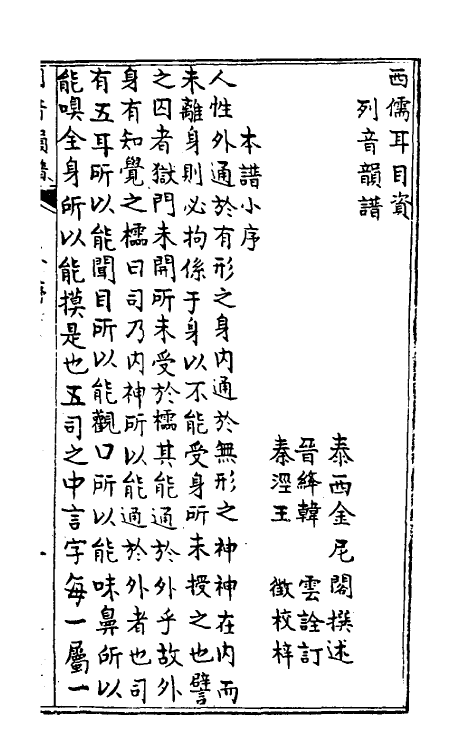 西儒耳目資
列音韻譜
泰西金尼閣撰述
晉絳韓雲詮訂
秦涇王徵校梓
本譜小序
人性外通於有形之身内通於無形之神神在内而
未離身則必拘係于身以不能受身所未授之也譬
之囚者獄門未開所未受於櫺其能通於外乎故外
身有知覺之櫺曰司乃内神所以能通於外者也司
有五耳所以能聞目所以能觀口所以能味鼻所以
能嗅全身所以能摸是也五司之中言字每一屬一